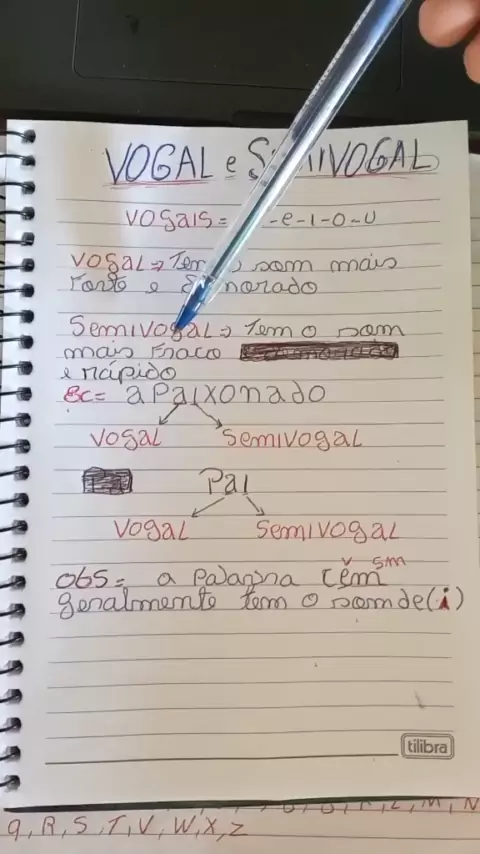 VOGAL e SEMIVOGAL
VOGAIS= -e-I-O-U
VOGAL→ Tem o som mais
Forte e
SemIVogaL→ Tem o som
mais Fraco
e rápido
Ec= aPaIxonado
VogaL SemIVogaL
PaI
VogaL SemIVogaL
obs= a palavra cêm
v sm
geralmente tem o som de (i)
tilibra
M, N
Q, R, S, T, V, W, X, Z